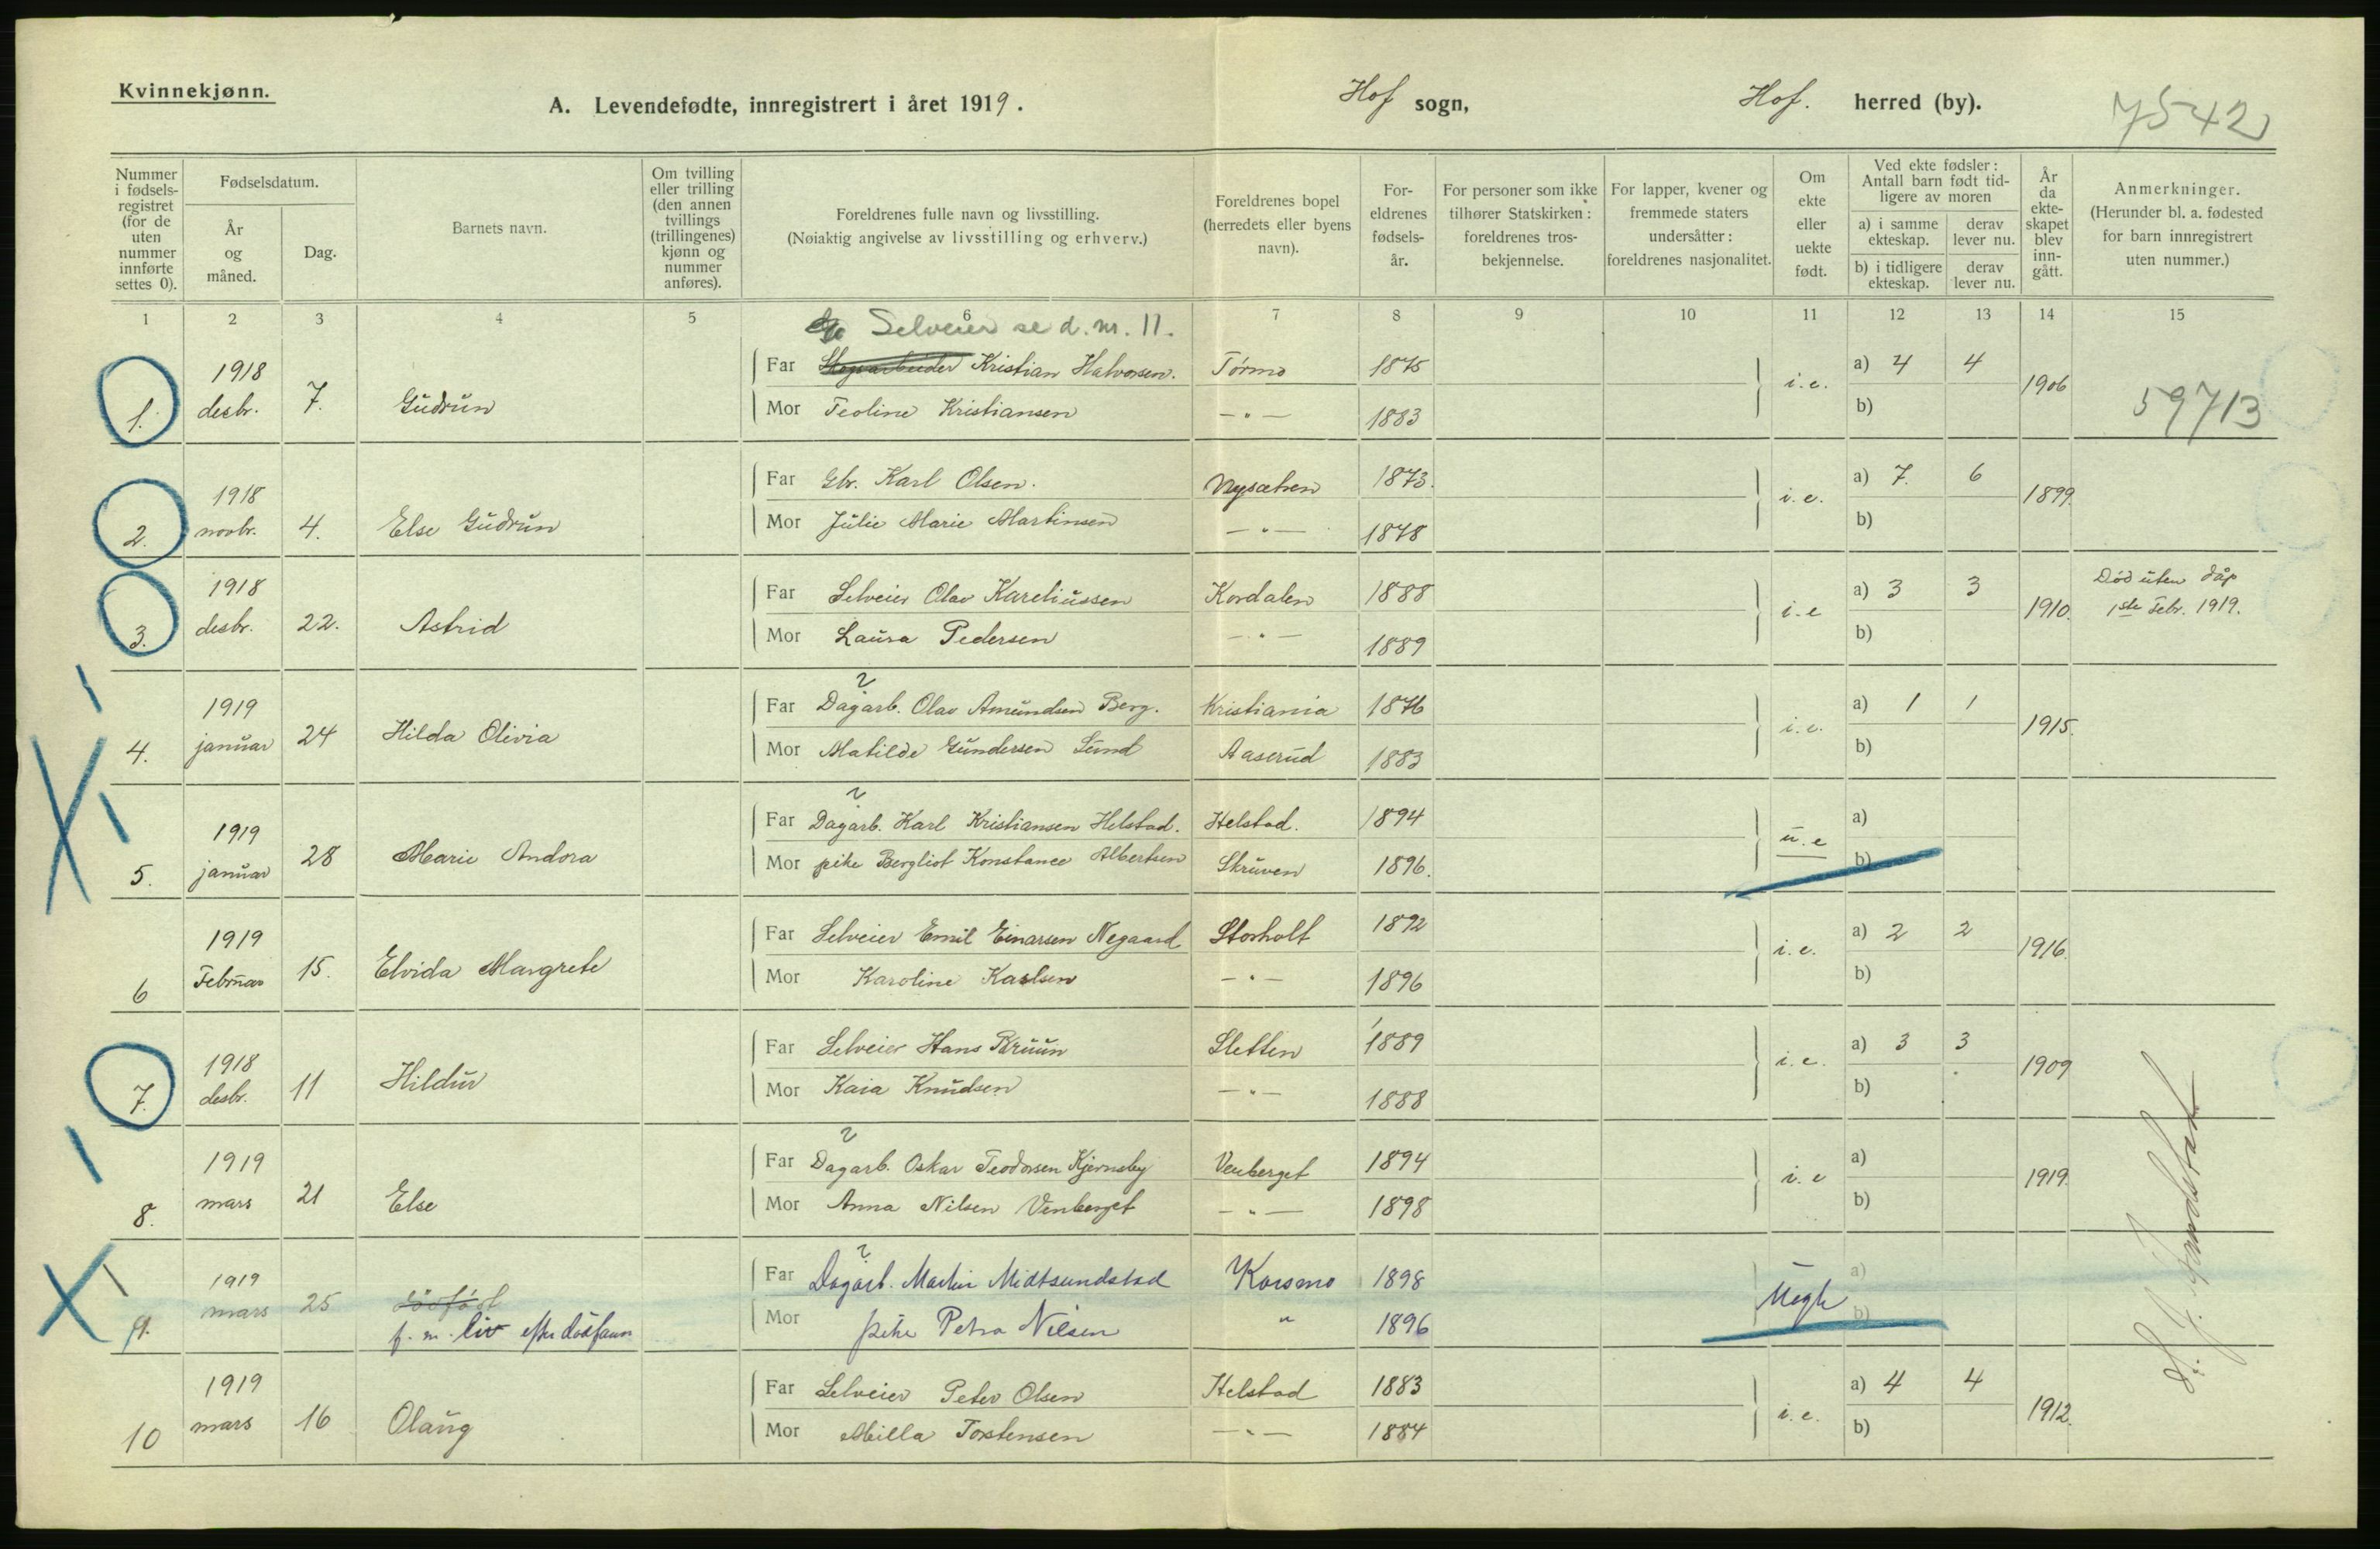 Kvinnekjønn.
A. Levendefødte, innregistrert i året 1919. Hof sogn, Hof. herred (by). 7542
Nummer i fødselsregistret (for de uten nummer innførte settes 0).
Fødselsdatum.
År og måned.
Dag.
Barnets navn.
Om tvilling eller trilling (den annen tvillings (trillingenes) kjønn og nummer anføres).
Foreldrenes fulle navn og livsstilling.
(Nøiaktig angivelse av livsstilling og erhverv.)
Foreldrenes bopel (herredets eller byens navn).
Foreldrenes fødselsår.
For personer som ikke tilhører Statskirken: foreldrenes trosbekjennelse.
For lapper, kvener og fremmede staters undersåtter: foreldrenes nasjonalitet.
Om ekte eller uekte født.
Ved ekte fødsler: Antall barn født tidligere av moren
a) i samme ekteskap. derav lever nu.
b) i tidligere ekteskap. derav lever nu.
År da ekteskapet blev inngått.
Anmerkninger.
(Herunder bl. a. fødested for barn innregistrert uten nummer.)
1 2 3 4 5 6 7 8 9 10 11 12 13 14 15
Selveier se d. nr. 11.
1. 1918 desbr. 7. Gudrun Far Skogarbeider Kristian Halvorsen. Tørmo 1875 i.e. a) 4 4 1906 59713
Mor Teoline Kristiansen — " — 1883 b)
2. 1918 novbr. 4. Else Gudrun Far Gbr. Karl Olsen. Nysætren 1873. i.e. a) 7. 6 1899.
Mor Julie Marie Martinsen — " — 1878 b)
3. 1918 desbr. 22. Astrid Far Selveier Olav Kareliussen Kordalen 1888 i.e a) 3 3 1910. Död uten dåp 1ste Febr. 1919.
Mor Laura Pedersen — " — 1889 b)
4. 1919 januar 24 Hilda Olivia Far Dagarb. Olav Amundsen Berg. Kristiania 1876 i.e. a) 1 1 1915.
Mor Matilde Gundersen Lund Aaserud 1883 b)
5. 1919 januar 28 Marie Andora Far Dagarb. Karl Kristiansen Helstad. Helstad. 1894 u.e a)
Mor pike Bergliot Konstance Albertsen Skruven 1896. b)
6 1919 Februar 15. Elvida Margrete Far Selveier Emil Einarsen Negaard Storholt 1892 i.e. a) 2 2 1916.
Mor Karoline Karlsen — " — 1896 b)
7. 1918 desbr. 11 Hildur Far Selveier Hans Bruun Sletten 1889 i.e. a) 3 3 1909
Mor Kaia Knudsen — " — 1888 b)
8. 1919 mars 21 Else Far Dagarb. Oskar Teodorsen Kjernsby Venberget 1894 i.e a) 1919.
Mor Anna Nilsen Venberget — " — 1898 b)
9. 1919 mars 25 dödfödt f. m. liv Far Dagarb. Martin Midtsundstad Korsmo 1898 Uegte a)
Mor pike Petra Nilsen " 1896 b)
10 1919 mars 16 Olaug Far Selveier Peter Olsen Helstad 1883 i.e. a) 4 4 1912.
Mor Milla Torstensen — " — 1884 b)